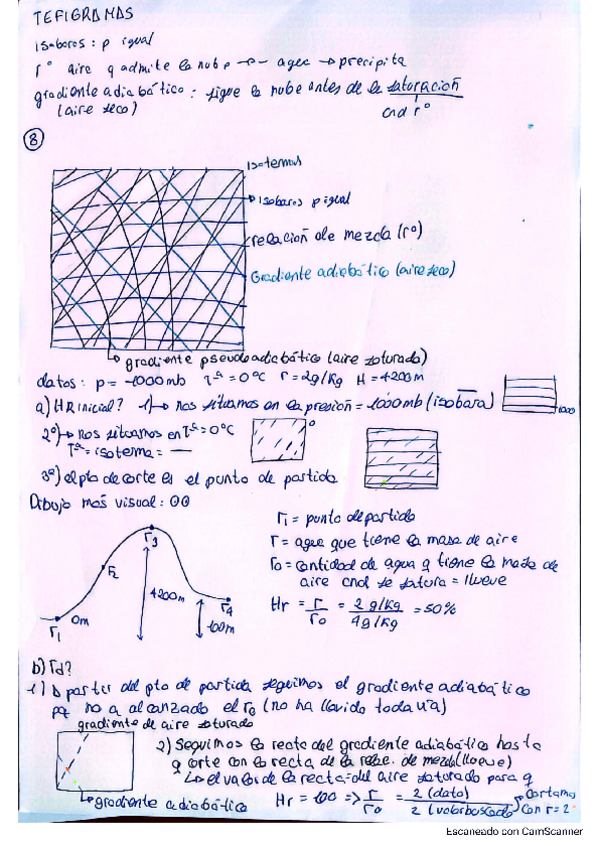 TEFIGRAMAS
isobaras : p igual
rº aire q admite la nube → - agua → precipita
gradiente adiabático : sigue la nube antes de la saturación
(aire seco)
cnd rº
⑧
Isotermas
Isobaras p igual
relación de mezcla (rº)
Gradiente adiabático (aire seco)
gradiente pseudoadiabático (aire saturado)
datos : p = 1000mb Tª = 0ºC r = 2g/Kg H = 4200m
a) HR inicial? 1) → nos situamos en la presión = 1000mb (isobara)
1000
2º) → nos situamos en Tª = 0ºC
0
Tª = isoterma = —
3º) el pto de corte es el punto de partida
Dibujo más visual :
r1 = punto de partida
r = agua que tiene la masa de aire
ro = cantidad de agua q tiene la masa de
aire cnd se satura = llueve
Hr = r/ro = 2 g/Kg / 4g/Kg = 50%
r3
r2
4200m
r4
0m
r1
100m
b) Td?
1) A partir del pto de partida seguimos el gradiente adiabático
pq no a alcanzado el ro (no ha llovido todavía)
gradiente de aire saturado
2) Seguimos la recta del gradiente adiabático hasta
q corte con la recta de la relac. de mezcla (llueve)
el valor de la recta = del aire saturado para q
gradiente adiabático
Hr = 100 => r/ro = 2 (dato) / 2 (valor buscado) cortamos con r = 2
Escaneado con CamScanner